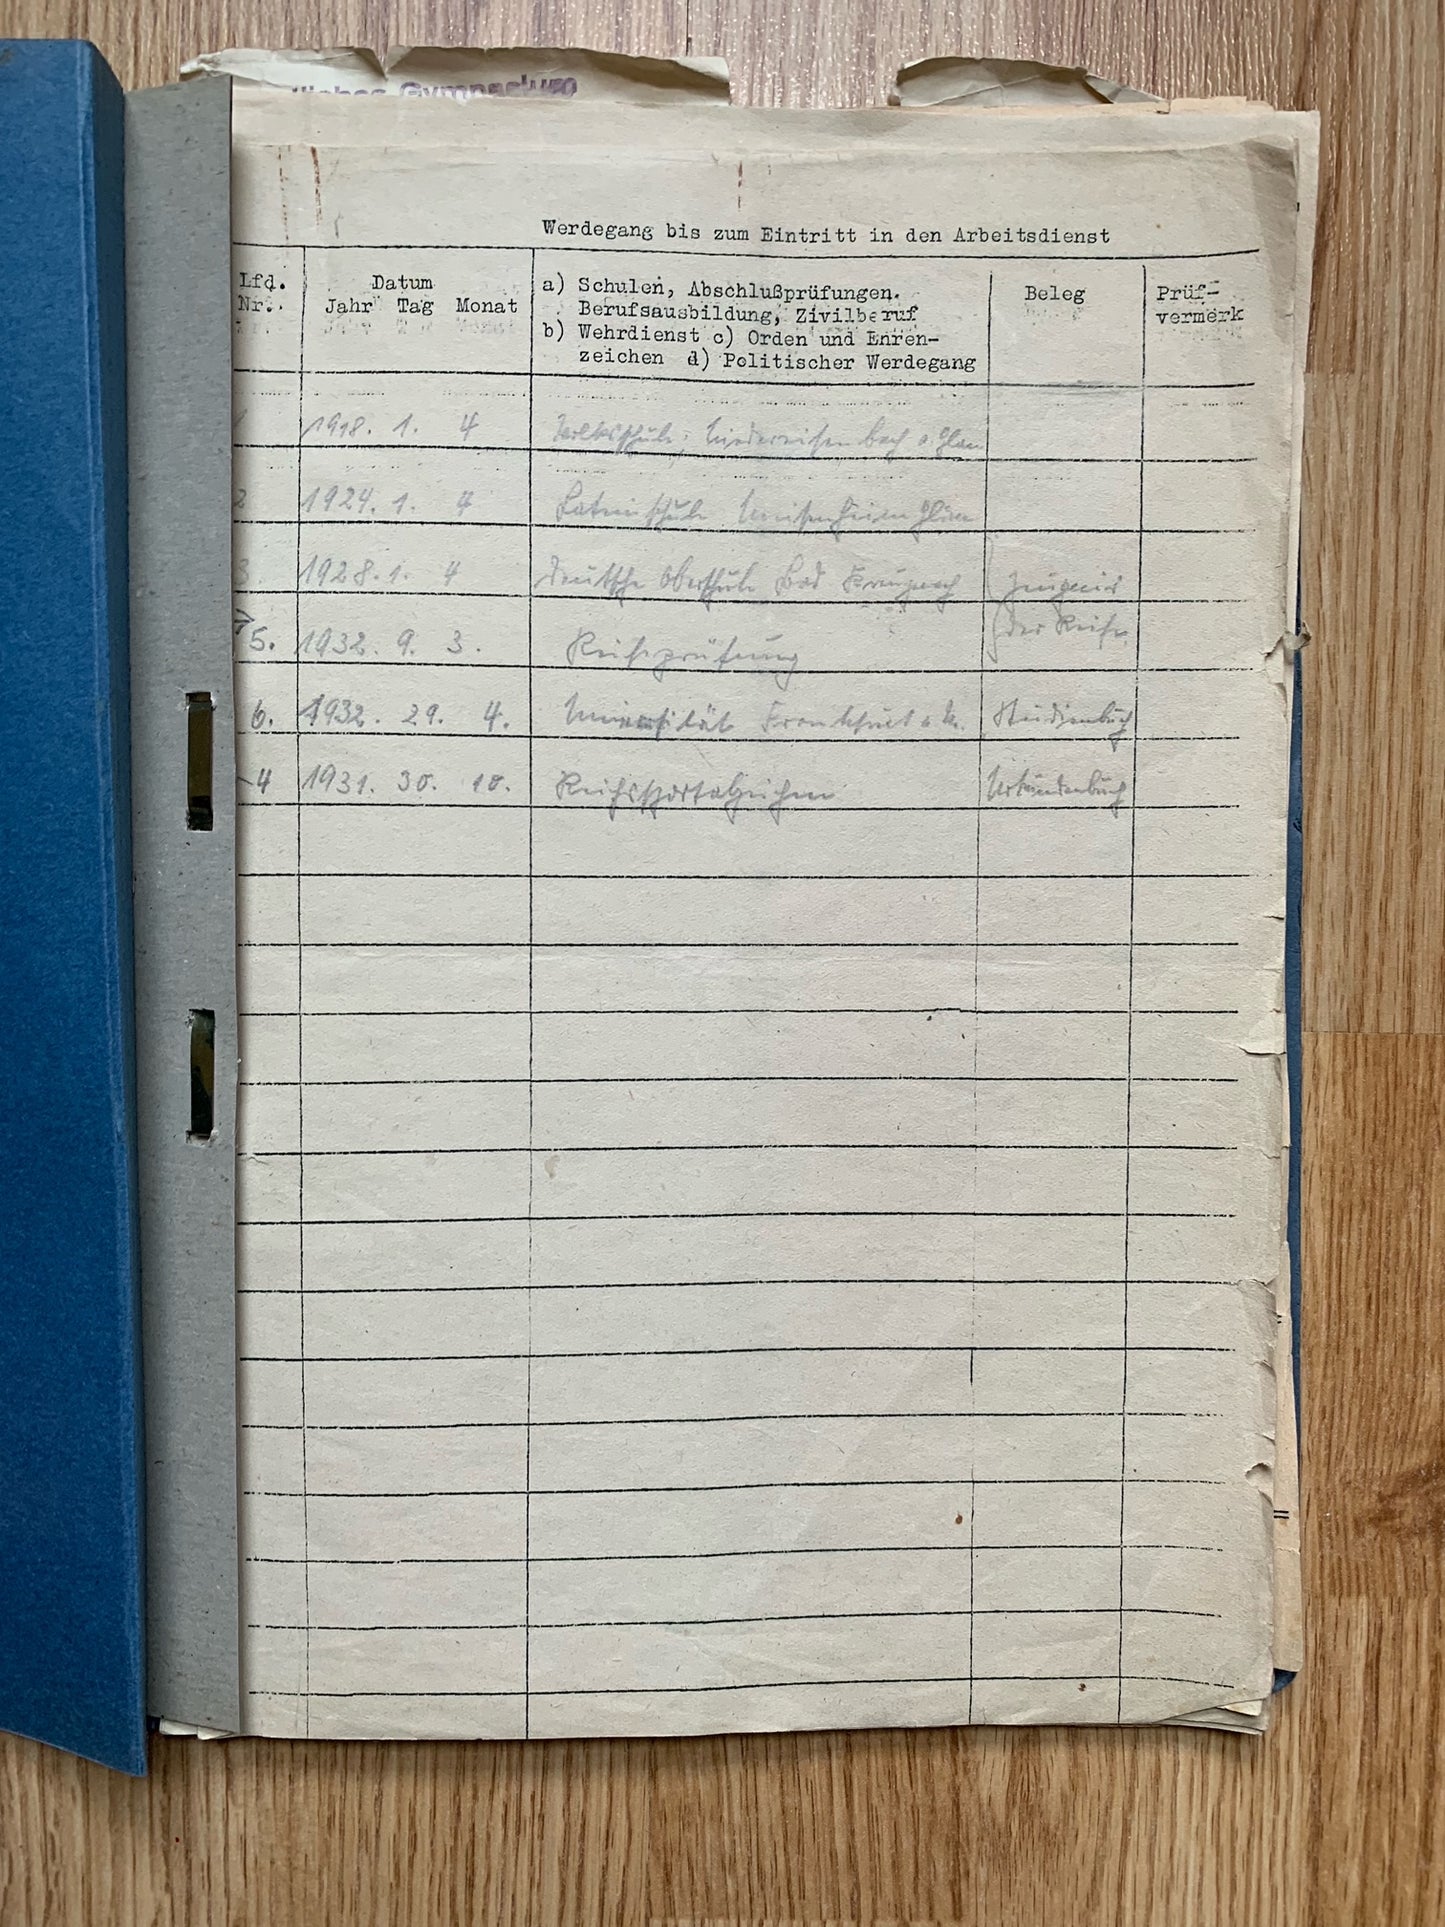 Gymnasium
Werdegang bis zum Eintritt in den Arbeitsdienst
Lfd. Nr.
Datum
Jahr Tag Monat
a) Schulen, Abschlußprüfungen.
Berufsausbildung, Zivilberuf
b) Wehrdienst c) Orden und Ehren-
zeichen d) Politischer Werdegang
Beleg
Prüf-
vermerk
1 1918. 1. 4 Volksschule, Niedereisenbach a Glan
2 1924. 1. 4 Lateinschule Meisenheim Glan
3 1928. 1. 4 Deutsche Oberschule Bad Kreuznach Zeugnis
5. 1932. 9. 3. Reifeprüfung der Reife
6. 1932. 29. 4. Universität Frankfurt a M. Studienbuch
4 1931. 30. 10. Reichssportabzeichen Urkundenbuch